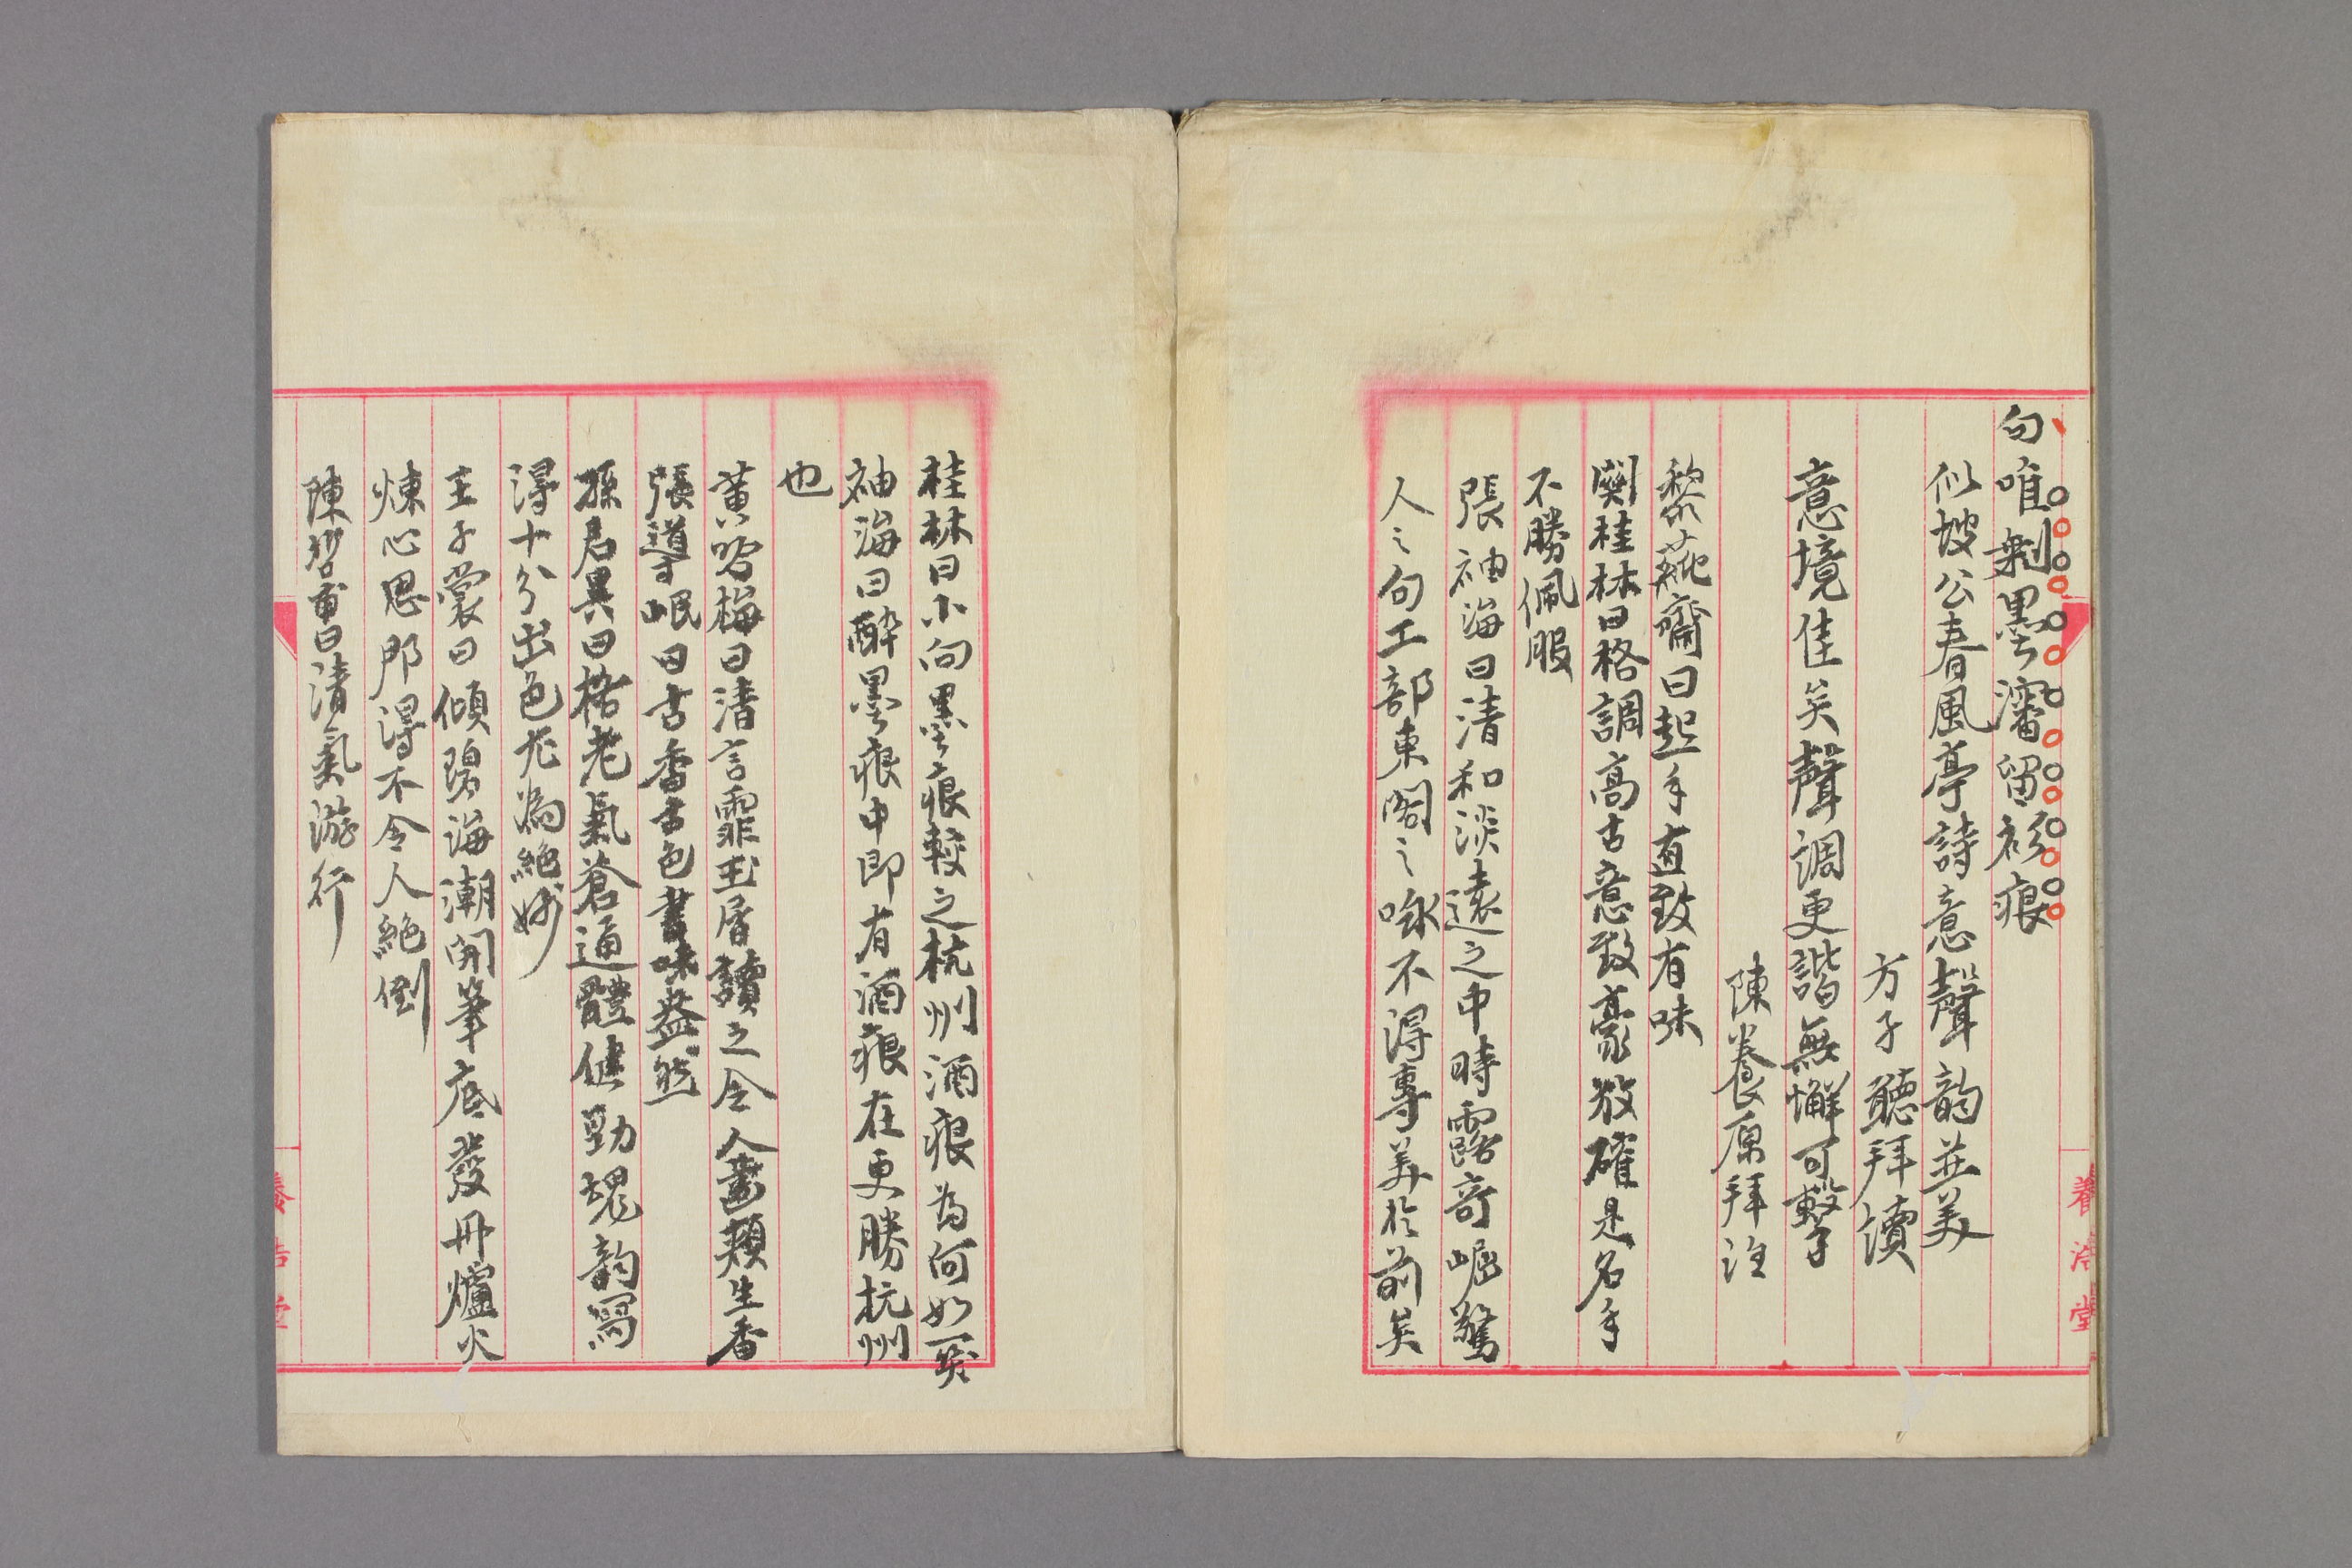 句唯剩墨瀋留衫痕
似坡公春風亭詩意聲韵並美
方子聽拜讀
意境佳矣聲調更諧無懈可擊
陳養原拜注
黎蒓齋曰起手直致有味
關桂林曰格調高古意致豪放確是名手
不勝佩服
張袖海曰清和淡遠之中時露奇崛驚
人之句工部東閣之咏不得專美於前矣
養浩堂
桂林曰小向墨痕較之杭州酒痕為何如一笑
袖海曰酔墨痕中即有酒痕在更勝抗州
也
黃吟梅曰清言霏玉屑讀之令人齒頰生香
張導岷曰古香古色書味盎然
孫君異曰格老氣蒼通體健勁瑰韵寫
得十分出色尤為絕妙
王子裳曰傾碧海潮開筆底發丹爐火
煉心思那得不令人絕倒
陳哲甫曰清氣游行
養浩堂